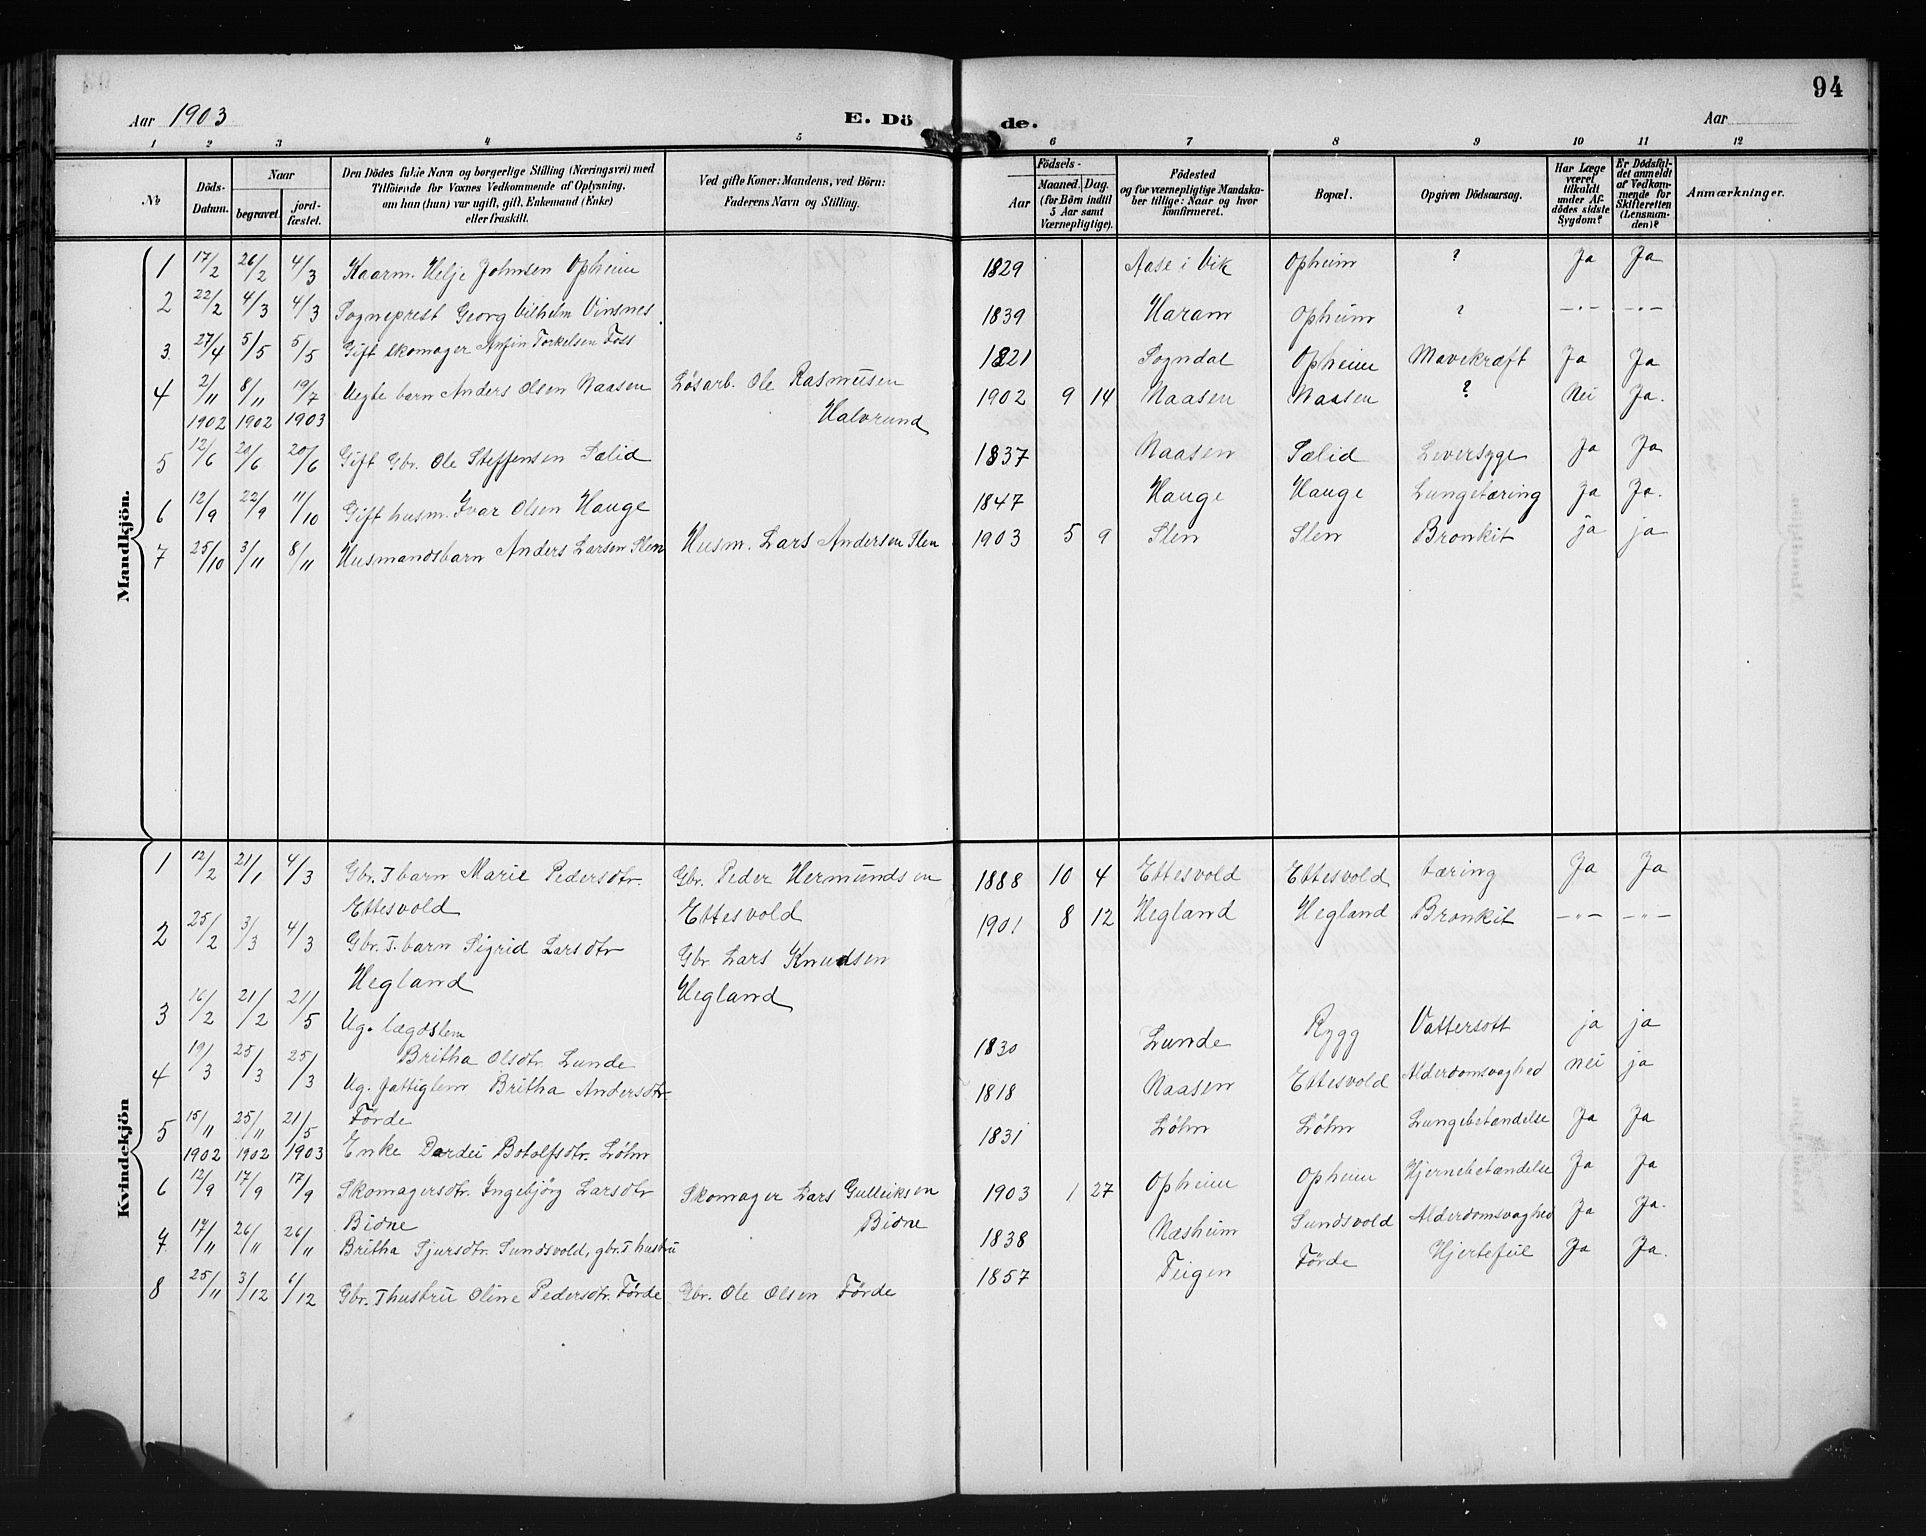 94
Aar 1903 E. Dö de. Aar
1 2 3 4 5 6 7 8 9 10 11 12
No
Döds-Datum.
Naar
begravet.
jord-fæstet.
Den Dödes fulde Navn og borgerlige Stilling (Næringsvei) med
Tilföiende for Voxnes Vedkommende af Oplysning,
om han (hun) var ugift, gift, Enkemand (Enke)
eller fraskilt.
Ved gifte Koner: Mandens, ved Börn:
Faderens Navn og Stilling.
Födsels-
Aar
Maaned. Dag.
(for Börn indtil
5 Aar samt
Værnepligtige).
Födested
og for værnepligtige Mandska-
ber tillige: Naar og hvor
konfirmeret.
Bopæl.
Opgiven Dödsaarsag.
Har Læge
været
tilkaldt
under Af-
dödes sidste
Sygdom?
Er Dödsfal-
det anmeldt
af Vedkom-
mende for
Skifteretten
(Lensman-
den)?
Anmærkninger.
Mandkjön.
1 17/2 26/2 4/3 Kaarm. Helje Johnsen Opheim 1829 Aase i Vik Opheim ? Ja Ja
2 22/2 4/3 4/3 Sogneprest Georg Vilhelm Vinsnes 1839 Haram Opheim ? -"- -"-
3. 27/4 5/5 5/5 Gift skomager Anfin Torkelsen Foss 1821 Sogndal Opheim Mavekræft Ja Ja
4 2/11 8/11 19/7 Uegte barn Anders Olsen Naasen Løsarb. Ole Rasmusen 1902 9 14 Naasen Naasen ? Nei Ja.
1902 1902 1903 Halvrund
5 12/6 20/6 20/6 Gift Gbr. Ole Steffensen Sælid 1837 Naasen Sælid Leversyge Ja Ja
6 12/9 22/9 11/10 Gift husm. Ivar Olsen Hauge 1847 Hauge Hauge Lungetæring Ja Ja.
7 25/10 3/11 8/11 Husmandsbarn Anders Larsen Slen Husm. Lars Andersen Slen 1903 5 9 Slen Slen Bronkit ja ja
Kvindekjön
1 12/2 21/1 4/3 Gbr. T barn Marie Pedersdtr. Gbr. Peder Hermundsen 1888 10 4 Ettesvold Ettesvold tæring Ja Ja
Ettesvold Ettesvold
2 25/2 3/3 4/3 Gbr. T. barn Sigrid Larsdtr Gbr. Lars Knudsen 1901 8 12 Hegland Hegland Bronkit -"- -"-
Hegland Hegland
3 16/2 21/2 21/5 Ug. lægdslem
Britha Olsdtr. Lunde 1830 Lunde Rygg Vattersott ja ja
4 19/3 25/3 25/3 Ug. fattiglem Britha Andersdtr 1818 Naasen Ettesvold Alderdomsvaghed nei ja
Førde
5 15/11 25/11 21/5 Enke Dordei Botolfsdtr. Løhn 1831 Løhn Løhn Lungebetændelse Ja Ja
1902 1902 1903
6 12/9 17/9 17/9 Skomagersdtr. Ingebjörg Larsdtr Skomager Lars Gulleiksen 1903 1 27 Opheim Opheim Hjernebetændelse Ja Ja
Bidne Bidne
7 17/11 26/11 26/11 Britha Sjursdtr. Sundsvold, gbr. T hustru 1838 Næsheim Sundsvold Alderdomsvaghed Ja Ja.
8 25/11 3/12 6/12 Gbr. T hustru Oline Pedersdtr. Førde Gbr. Ole Olsen Førde 1857 Feigen Førde Hjertefeil Ja Ja.